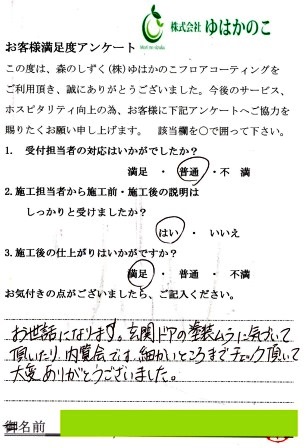 株式会社 ゆはかのこ
お客様満足度アンケート
この度は、森のしずく(株)ゆはかのこフロアコーティングを
ご利用頂き、誠にありがとうございました。今後のサービス、
ホスピタリティ向上の為、お客様に下記アンケートへご協力を
賜りたくお願い申し上げます。 該当欄を○で囲って下さい。
1. 受付担当者の対応はいかがでしたか?
満足 ・ 普通 ・ 不 満
2.施工担当者から施工前・施工後の説明は
しっかりと受けましたか?
はい ・ いいえ
3.施工後の仕上がりはいかがですか?
満足 ・ 普通 ・ 不 満
お気付きの点がございましたら、ご記入ください。
お世話になります。玄関ドアの塗装ムラに気づいて
頂いたり、内覧会では、細かいところまでチェック頂いて
大変ありがとうございました。
御名前